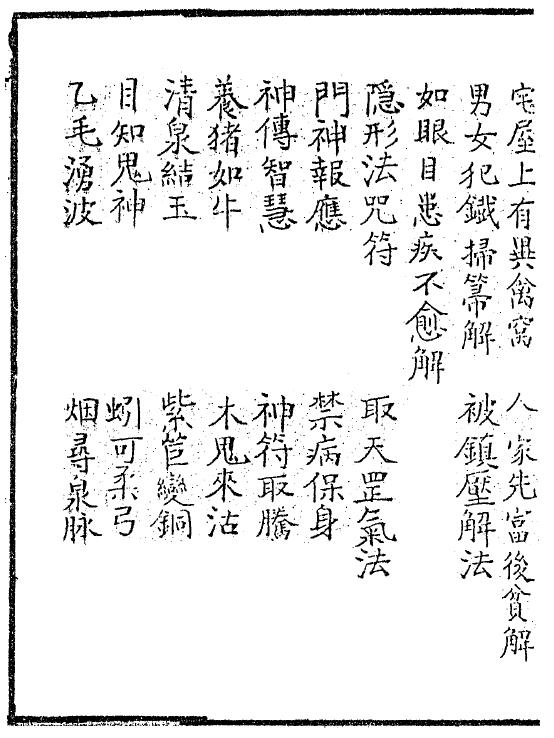 宅屋上有異禽窩 人家先富後貧解
男女犯鐵掃箒解 被鎮壓解法
如眼目患疾不愈解
隱形法咒符 取天罡氣法
門神報應 禁病保身
神傳智慧 神符取騰
養猪如牛 木鬼來沽
清泉結玉 紫笸變銅
目知鬼神 蚓可柔弓
乙毛湧波 烟尋泉脉